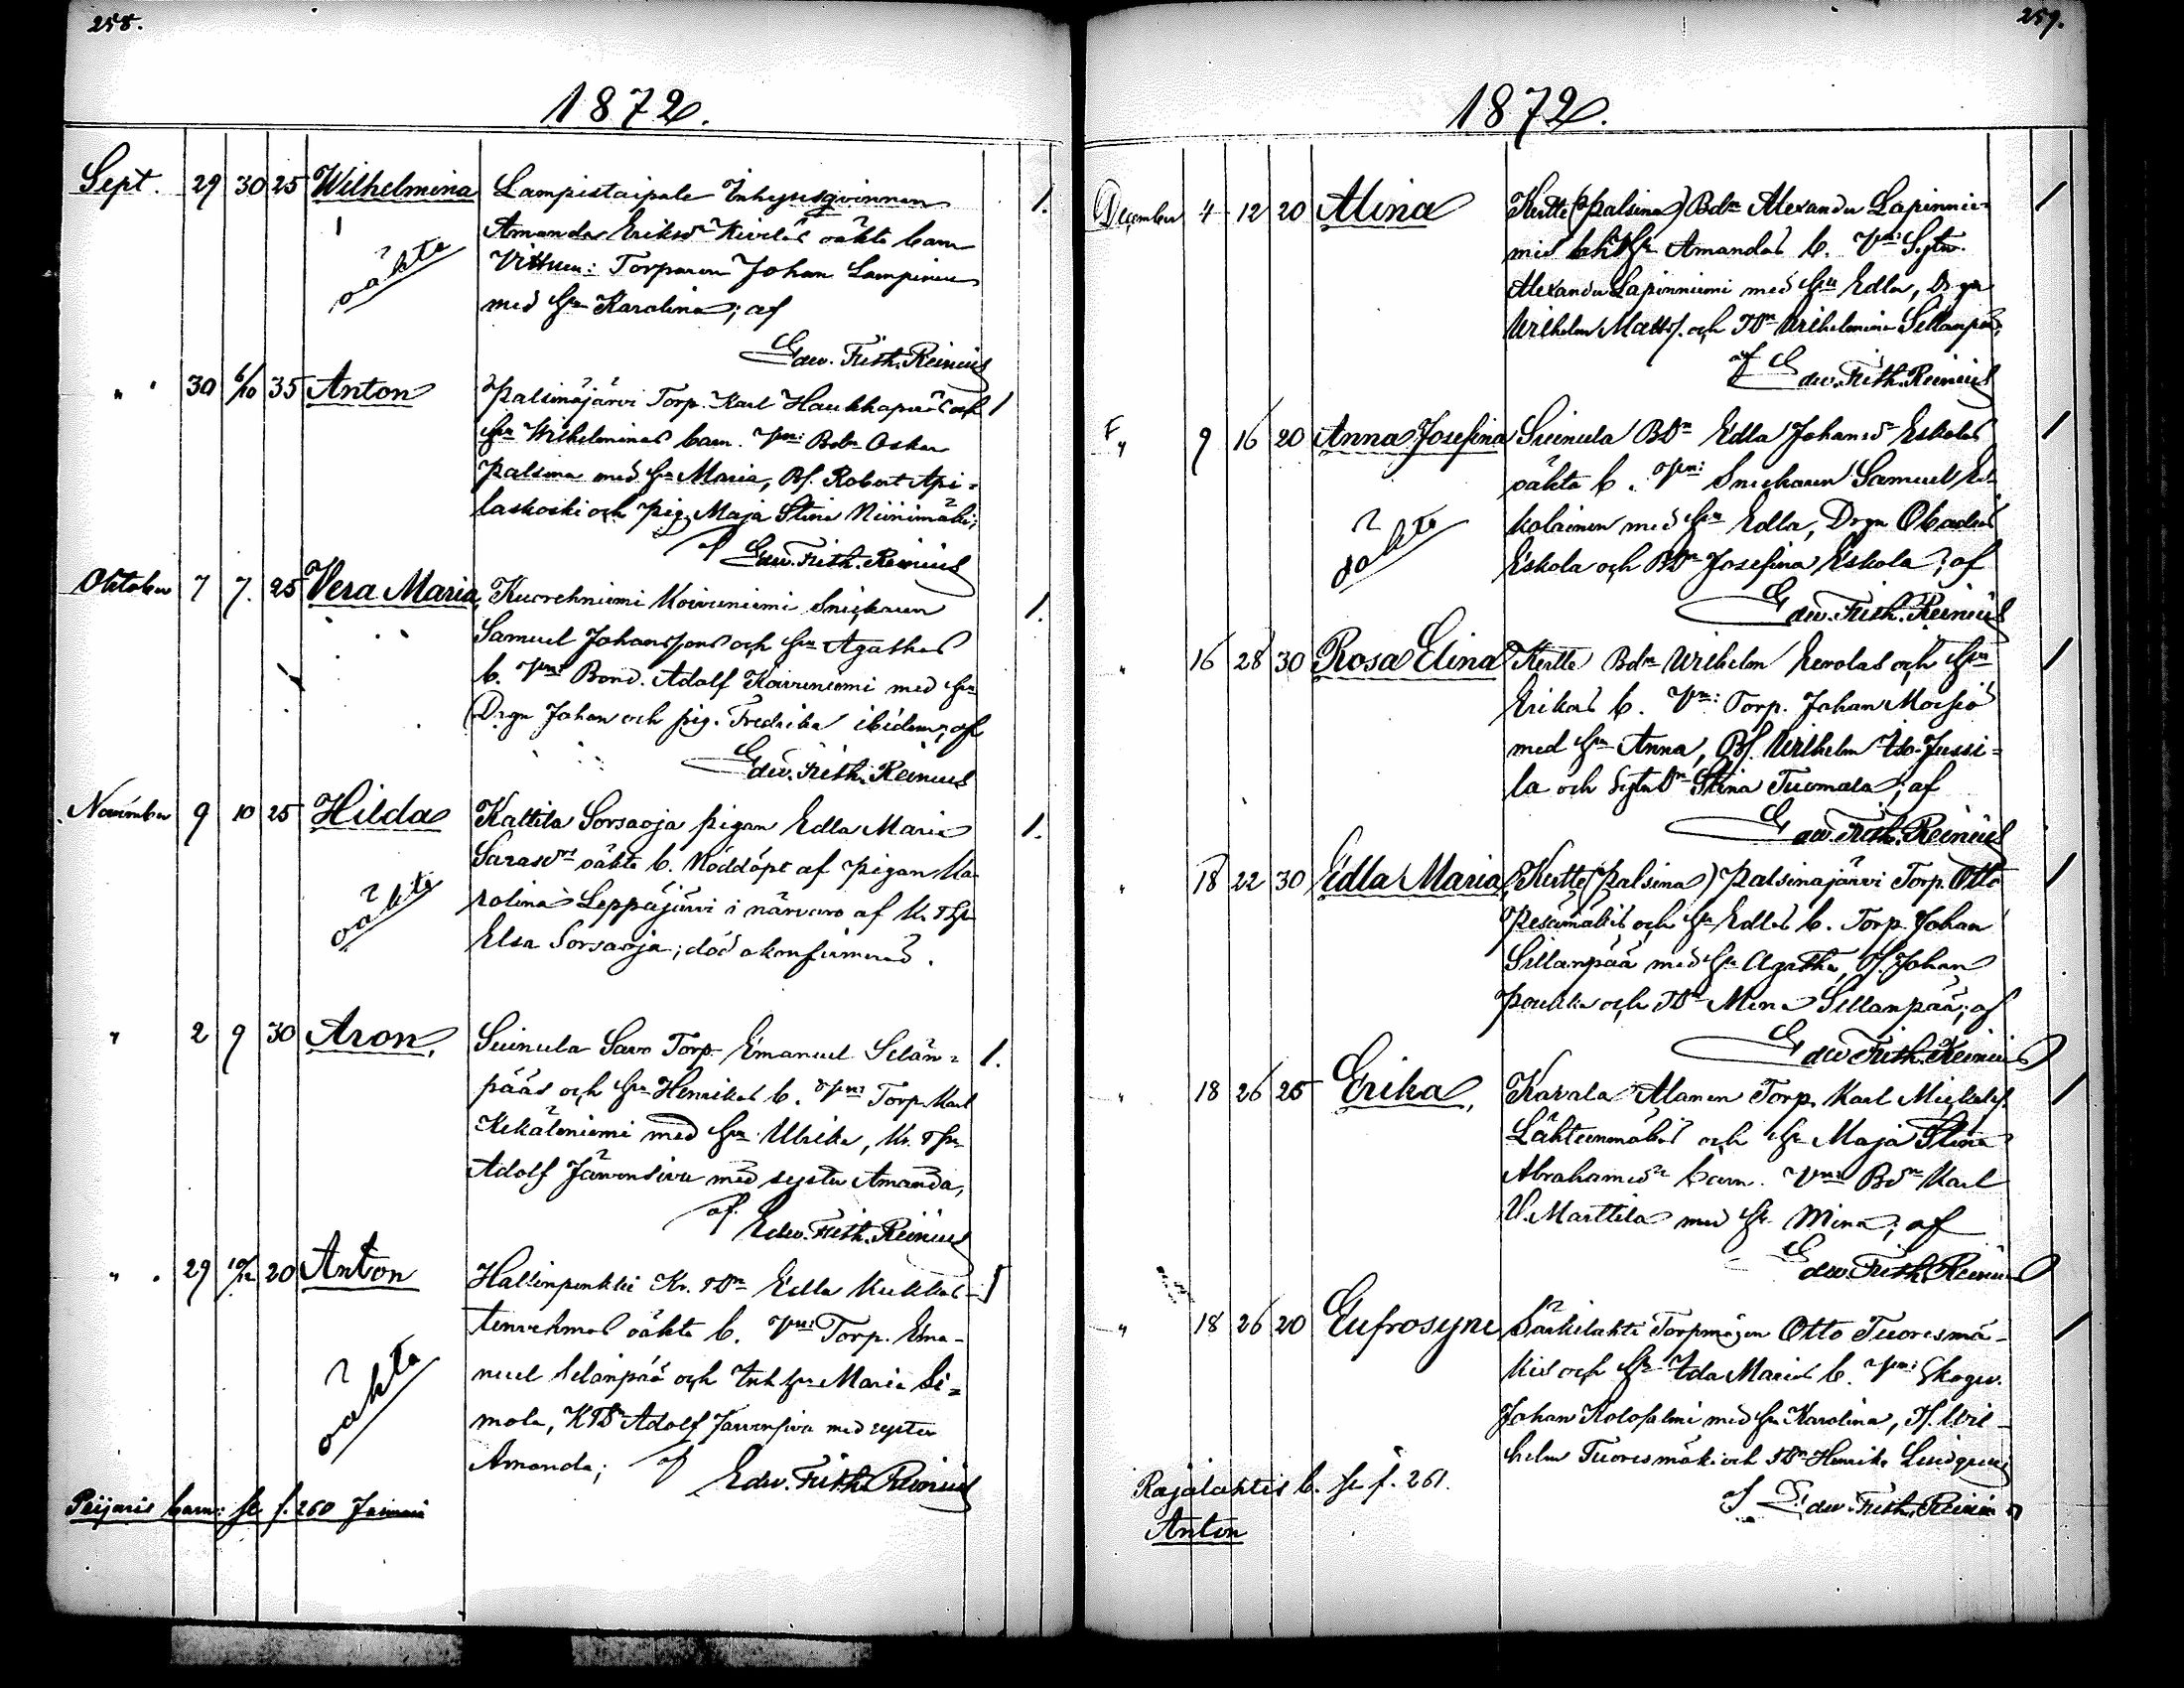 258.
1872.
Sept. 29 30 25 Wilhelmina Lampistaipale Inhysesqvinnan 1.
Amanda Eriksdr Kiveläs oäkta barn
oäkta
Vittnen: Torparen Johan Lampinen
med hu Karolina; af
Edw. Frith. Reinius
" 30 6/10 35 Anton Palsinajärvi Torp. Karl Haukkapääs och 1
hu Wilhelminas barn. Vnn: Bdn Oskar
Palsina med hu Maria, Bs. Robert Api-
laskoski och pig. Maja Stina Niinimäki;
af Edw. Frith. Reinius
Oktober 7 7. 25 Vera Maria Kuorehniemi Koivuniemi Snickaren 1.
Samuel Johanssons och hu Agathas
b. Vnn: Bond. Adolf Koivuniemi med hu
Drgn Johan och pig. Fredrika ibidem; af
Edw. Frith. Reinius
November 9 10 25 Hilda Kattila Sorsaoja pigan Edla Maria 1.
Sarasdrs oäkta b. Nöddöpt af pigan Ka-
oäkta
rolina Leppäjärvi i närvaro af
Elsa Sorsaoja; död okonfirmerad.
" 2 9 30 Aron. Suinula Savo Torp. Emanuel Selän- 1.
pääs och hu Henrikas b. Vnn: Torp. Karl
Kekäleniemi med hu Ulrika,
Adolf Järvensivu med syster Amanda,
af
Edw. Frith. Reinius
" 29 10/12 20 Anton Hallinpenkki Kr. TDr Edla Kukkas- 1
tenrahmas oäkta b. Vnn: Torp. Ema-
oäkta
nuel Selänpää och Inh hu Maria Si-
mola, Adolf Järvensivu med syster
Amanda; af
Edw. Frith. Reinius
Peijaris barn: se f. 260 Januari
259.
1872.
December 4 12 20 Alina Kertte (Palsina) Bdn Alexander Lapinnie-
mis och hu Amandas b. Vnn: Sytn.
Alexander Lapinniemi med hu Edla, Drgn
Wilhelm Matts. och TDr Wilhelmina Sillanpää;
af
Edw. Frith. Reinius
" 9 16 20 Anna Josefina Suinula BDr Edla Johansdr Eskolas 1
oäkta b. Vnn: Snickaren Samuel Es-
oäkta
kolainen med hu Edla, Drgn Obadias
Eskola och BDr Josefina Eskola; af
Edw. Frith. Reinius
" 16 28 30 Rosa Elina Kertte Bdn Wilhelm Eerolas och hu 1
Erikas b. Vnn: Torp. Johan Moisio
med hu Anna, Bs. Wilhelm Jussi-
la och Stina Tuomala; af
Edw. Frith. Reinius
" 18 22 30 Edla Maria Kertte (Palsina) Palsinajärvi Torp. Otto 1
Pesämäkis och hu Edlas b. Torp. Johan
Sillanpää med hu Agatha, Johan
och TDr Mina Sillanpää; af
Edw. Frith. Reinius
" 18 26 25 Erika, Karala Alanen Torp. Karl Mickels. 1
Lähteenmäkis och hu Maja Stina
Abrahamsdr barn. Vnn: Bdn Karl
U. Marttila med hu Mina; af
Edw. Frith. Reinius
" 18 26 20 Eufrosyne Särkilahti Torpmågen Otto Tuoresmä- 1
kis och hu Ida Marias b. Vnn: Skogv.
Johan Kolosalmi med hu Karolina, Ts. Wil-
helm Tuoresmäki och TDr Henrika Lindqvist
af Edw. Frith. Reinius
Rajalahtis b. se f. 261.
Anton